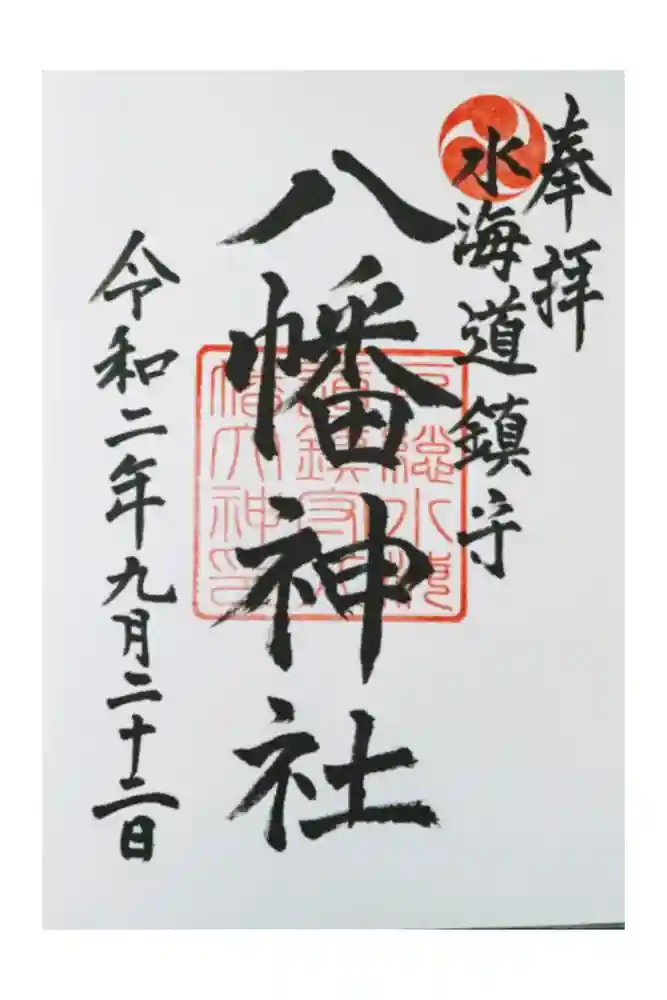 奉拝
水海道鎮守
八幡神社
令和二年九月二十二日